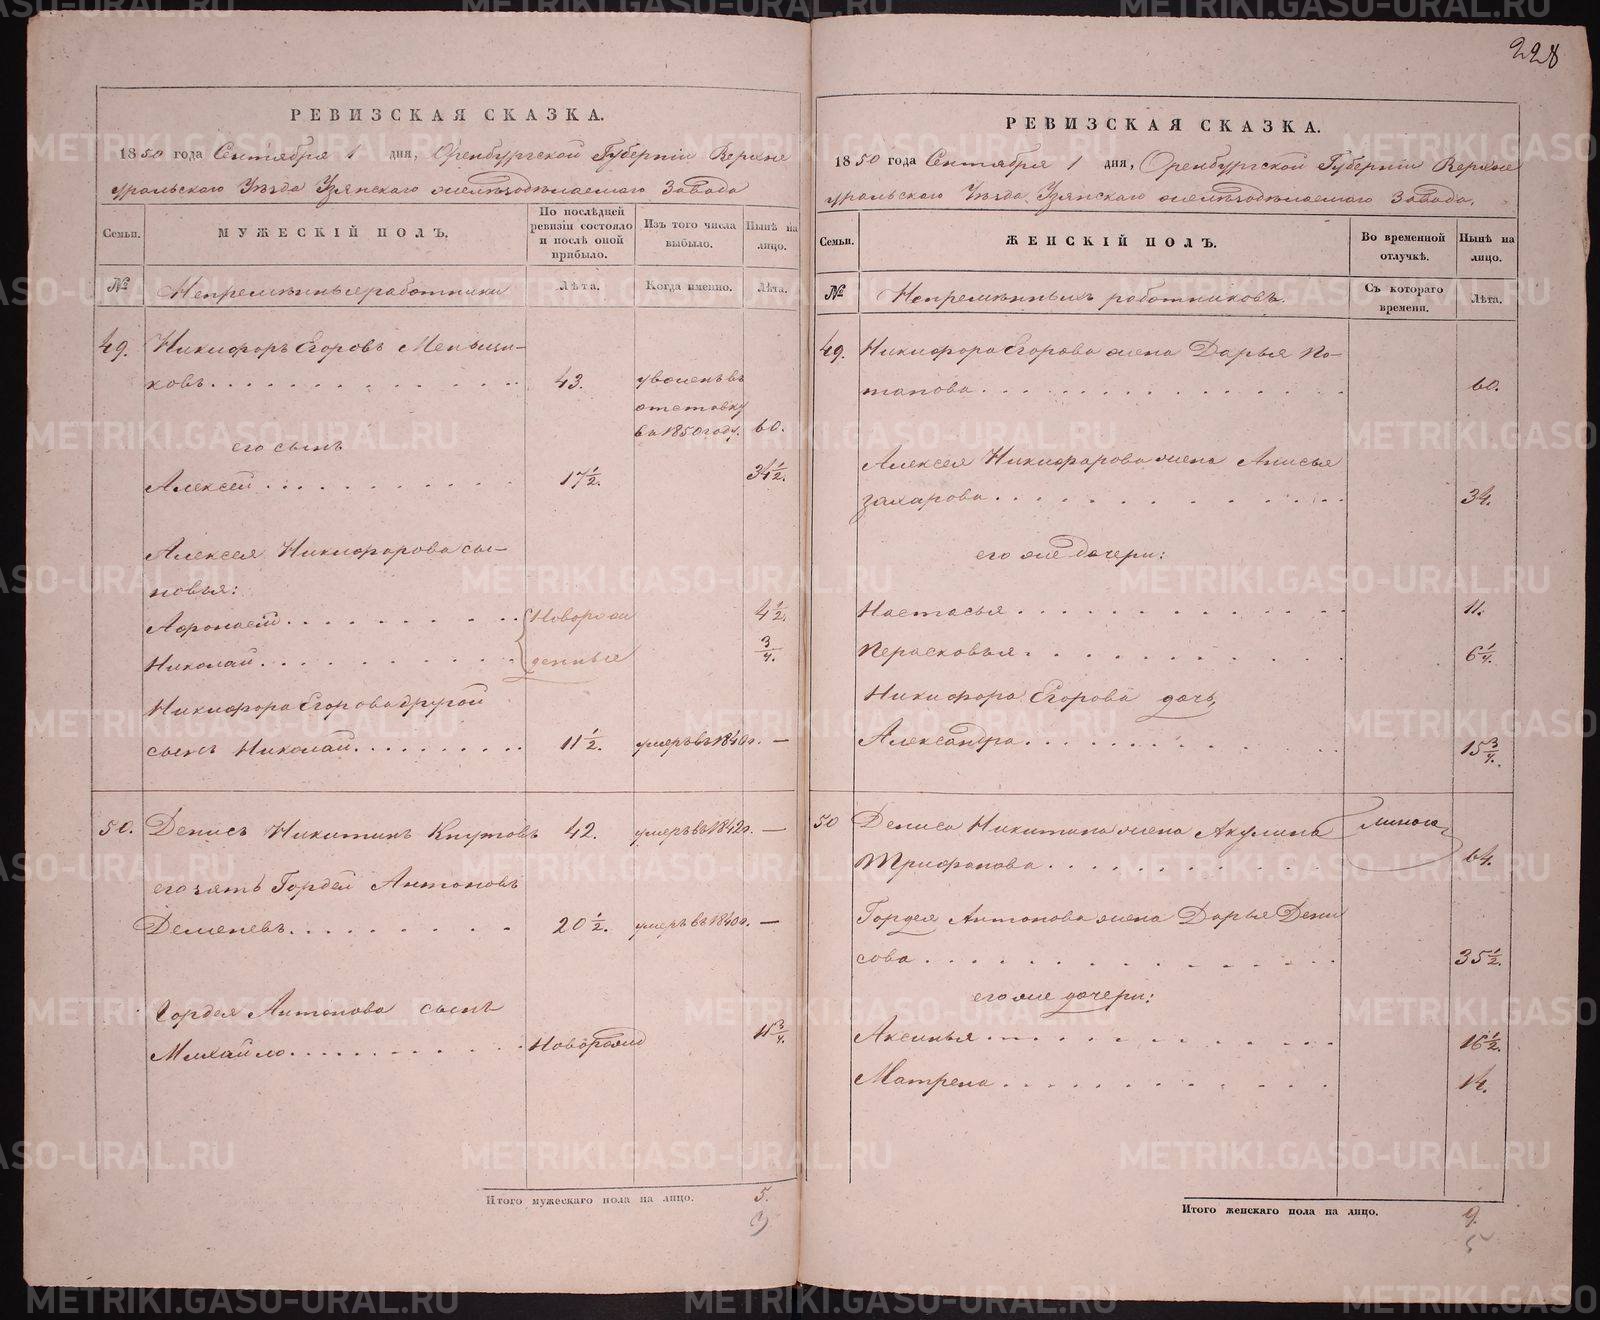 228
РЕВИЗСКАЯ СКАЗКА.
1850 года Сентября 1 дня, Оренбургской Губернiи Верхне
уральскаго Уѣзда Узянскаго желѣзодѣлаемаго Завода
Семьи.
МУЖЕСКIЙ ПОЛЪ.
По послѣдней
ревизiи состояло
и послѣ оной
прибыло.
Изъ того числа
выбыло.
Нынѣ на
лицо.
№
Непремѣнные работники
Лѣта.
Когда именно.
Лѣта.
49. Никифоръ Егоровъ Меньши-
ковъ 43. уволенъ въ
отставку
въ 1850 году. 60.
его сынъ
Алексей 17 1/2. 34 1/2.
Алексея Никифорова сы-
новья:
Афонасей Новорож 4 1/2.
Николай денные 3/4.
Никифора Егорова другой
сынъ Николай 11 1/2. умеръ въ 1840 г. —
50. Денисъ Никитинъ Кнутовъ 42. умеръ въ 1842 г. —
его зять Гордей Антоновъ
Деменевъ 20 1/2. умеръ въ 1840 г. —
Гордея Антонова сынъ
Михайло Новорожд 11 3/4.
Итого мужескаго пола на лицо. 5.
3
РЕВИЗСКАЯ СКАЗКА.
1850 года Сентября 1 дня, Оренбургской Губернiи Верхне
уральскаго Уѣзда Узянскаго желѣзодѣлаемаго Завода.
Семьи.
ЖЕНСКIЙ ПОЛЪ.
Во временной
отлучкѣ.
Нынѣ на
лицо.
№
Непремѣнныхъ работниковъ.
Съ котораго
времени.
Лѣта.
49. Никифора Егорова жена Дарья По-
тапова 60.
Алексея Никифорова жена Анисья
Захарова 34.
его же дочери:
Настасья 11.
Перасковья 6 1/4.
Никифора Егорова дочь,
Александра 15 3/4.
50 Дениса Никитина жена Акулина
Трифонова 64.
Гордея Антонова жена Дарья Дени
сова 35 1/2.
его же дочери:
Аксинья 16 1/2.
Матрена 14.
Итого женскаго пола на лицо. 9.
5
METRIKI.GASO-URAL.RU